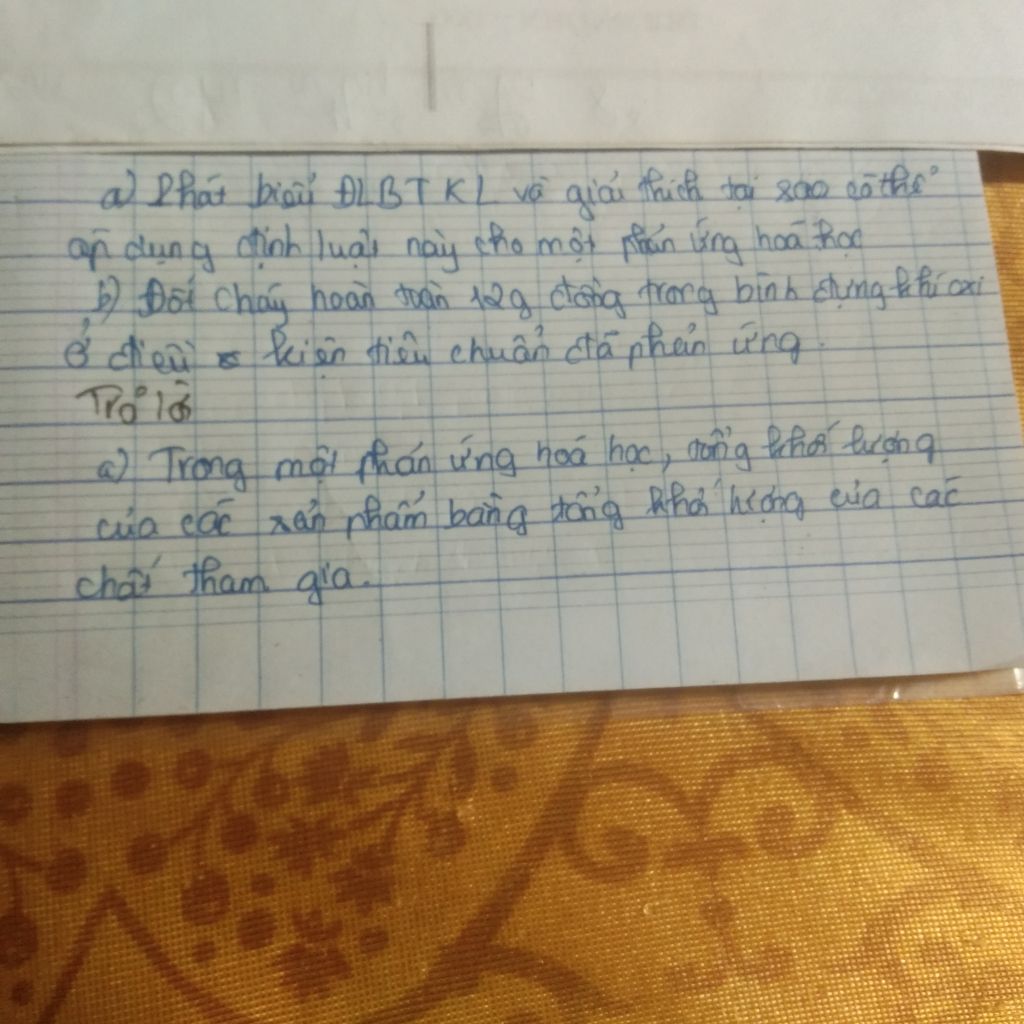 a) Phát biểu ĐLBTKL và giải thích tại sao có thể
áp dụng định luật này cho một phản ứng hoá học
b) Đốt cháy hoàn toàn 12g đồng trong bình đựng khí oxi
Ở điều kiện tiêu chuẩn đã phản ứng.
Trả lời
a) Trong một phản ứng hoá học, tổng khối lượng
của các sản phẩm bằng tổng khối lượng của các
chất tham gia.